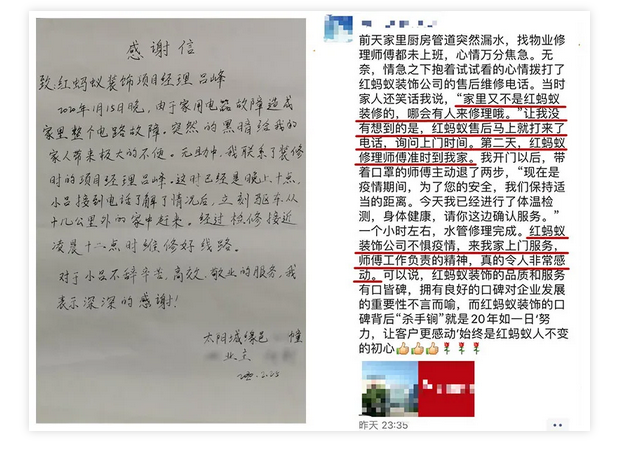 感谢信
致:红蚂蚁装饰项目经理吕峰
2020年1月15日晚,由于家用电器故障造成
家里整个电路故障。突然的黑暗给我的
家人带来极大的不便。无助中,我联系了装修
时的项目经理吕峰。这时已经是晚上十点,
小吕接到电话了解了情况后,立刻驱车从
十几公里外的家中赶来。经过检修接近
凌晨十二点时维修好线路。
对于小吕不辞辛苦,高效,敬业的服务,我
表示深深的感谢!
太阳城绿邑 幢
前天家里厨房管道突然漏水,找物业修
理师傅都未上班,心情万分焦急。无
奈,情急之下抱着试试看的心情拨打了
红蚂蚁装饰公司的售后维修电话。当时
家人还笑话我说,“家里又不是红蚂蚁
装修的,哪会有人来修理哦。”让我没
有想到的是,红蚂蚁售后马上就打来了
电话,询问上门时间。第二天,红蚂蚁
修理师傅准时到我家。我开门以后,带
着口罩的师傅主动退了两步,“现在是
疫情期间,为了您的安全,我们保持适
当的距离。今天我已经进行了体温检
测,身体健康,请你这边确认服务。”
一个小时左右,水管修理完成。红蚂蚁
装饰公司不惧疫情,来我家上门服务,
师傅工作负责的精神,真的令人非常感
动。可以说,红蚂蚁装饰的品质和服务
有口皆碑,拥有良好的口碑对企业发展
的重要性不言而喻,而红蚂蚁装饰的口
碑背后“杀手锏”就是20年如一日‘努
力,让客户更感动’始终是红蚂蚁人不变
的初心👍👍👍🌹🌹🌹
昨天 23:35